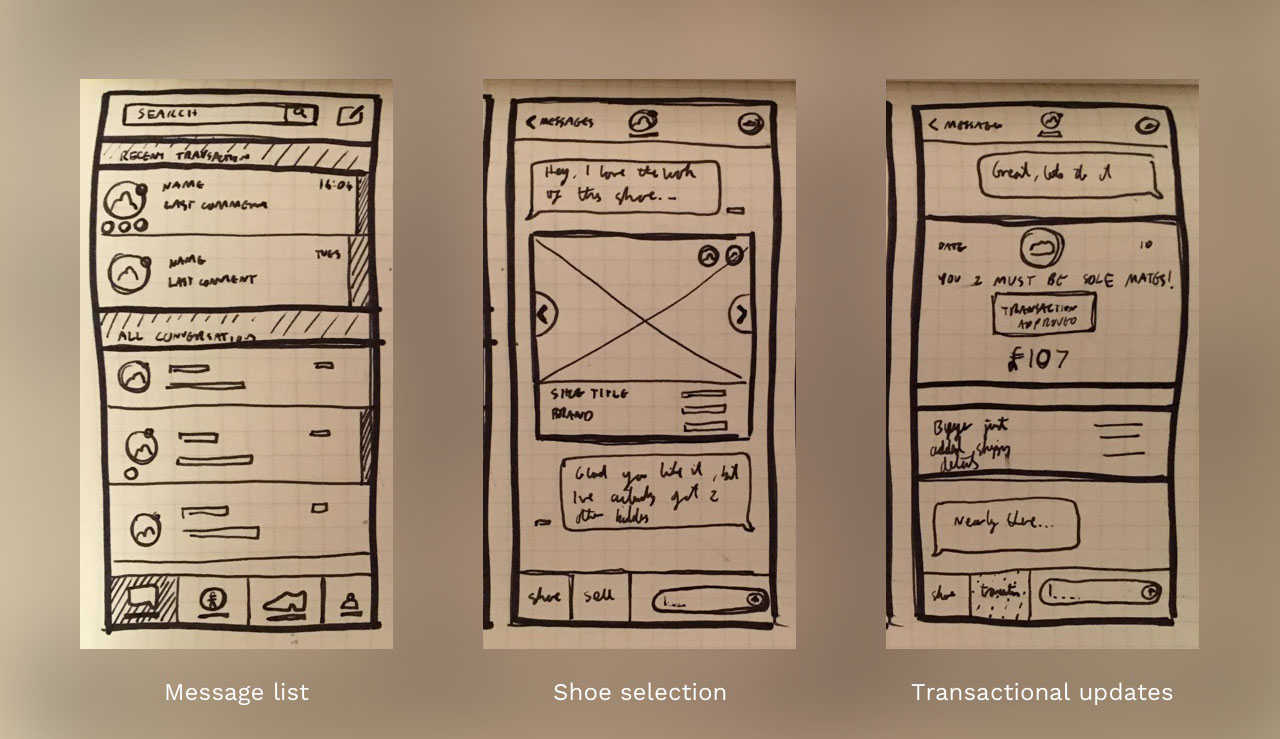 SEARCH
RECENT TRANSACTION
NAME
16:04
LAST COMMENT
NAME
TUES
LAST COMMENT
ALL CONVERSATION
Message list
MESSAGES
Hey, I love the look
of this shoe...
SHOE TITLE
BRAND
Glad you like it, but
I've already got 2
other bidders
shoe
sell
Shoe selection
MESSAGES
Great, lets do it
DATE
10
YOU 2 MUST BE SOLE MATES!
TRANSACTION
APPROVED
£107
Buyer just
added shipping
details
Nearly there...
shoe
Transactional updates